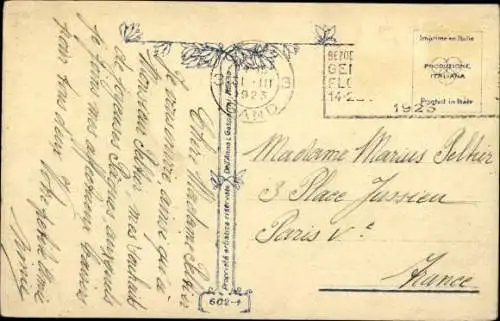 Chère Madame Peltier
Je vous envoie ainsi qu'à
Monsieur Peltier mes souhaits
de joyeuses Pâques auxquels
je joins mes affectueux baisers
pour tous deux. Votre petite amie
Proprietà artistica riservata
Dell'Anna & Gasparini, Milano
602-1
31 III
1923
GAND
BEZOE
GEN
FLO
14-2
1923
Imprimé en Italie
PRODUZIONE
ITALIANA
Printed in Italy
Madame Marius Peltier
3 Place Jussieu
Paris Ve
France